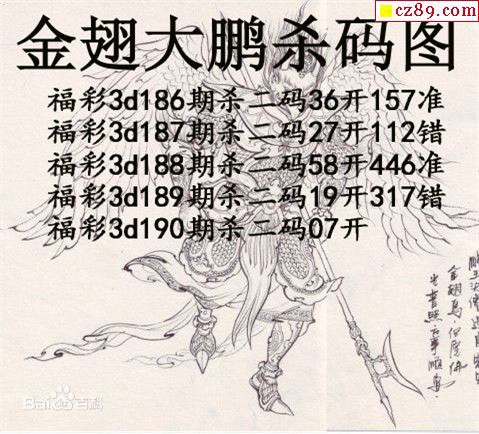 cz89.com
金翅大鹏杀码图
福彩3d186期杀二码36开157准
福彩3d187期杀二码27开112错
福彩3d188期杀二码58开446准
福彩3d189期杀二码19开317错
福彩3d190期杀二码07开
Baidu百科